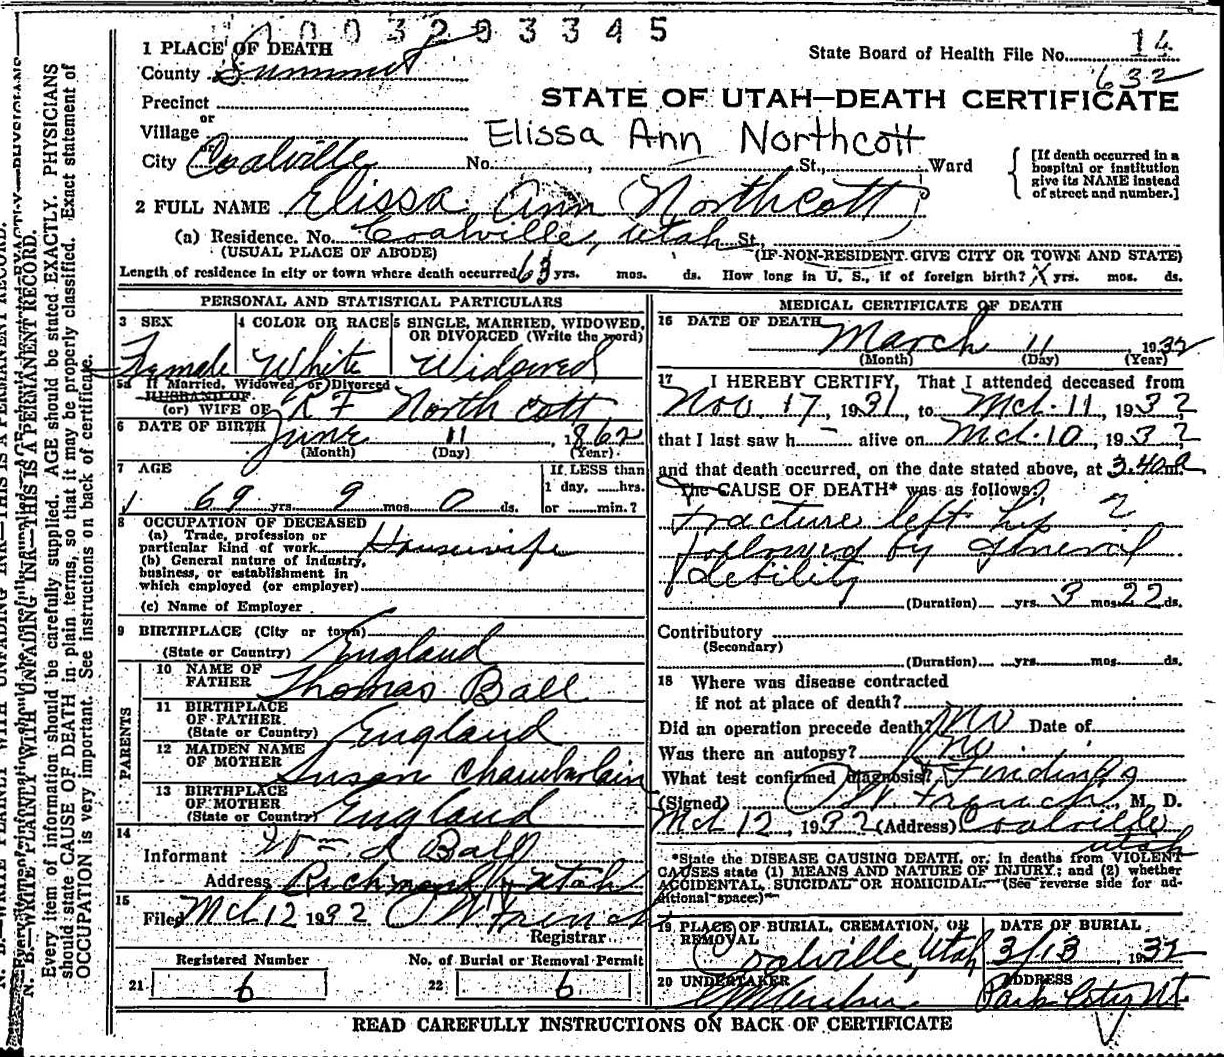 1003203345
1 PLACE OF DEATH
State Board of Health File No. 14
County Summit
632
STATE OF UTAH—DEATH CERTIFICATE
Precinct
or
Village
Elissa Ann Northcott
or
City Coalville No. , St., Ward
[If death occurred in a hospital or institution give its NAME instead of street and number.]
2 FULL NAME Elissa Ann Northcott
(a) Residence. No. Coalville, Utah St.,
(USUAL PLACE OF ABODE) (IF NON-RESIDENT GIVE CITY OR TOWN AND STATE)
Length of residence in city or town where death occurred 63 yrs. mos. ds. How long in U. S., if of foreign birth? X yrs. mos. ds.
PERSONAL AND STATISTICAL PARTICULARS
3 SEX
Female
4 COLOR OR RACE
White
5 SINGLE, MARRIED, WIDOWED, OR DIVORCED (Write the word)
Widowed
5a If Married, Widowed, or Divorced
HUSBAND OF
(or) WIFE OF R F Northcott
6 DATE OF BIRTH June 11, 1862
(Month) (Day) (Year)
7 AGE
69 yrs. 9 mos. 0 ds.
If LESS than
1 day, ......hrs.
or ......min.?
8 OCCUPATION OF DECEASED
(a) Trade, profession or
particular kind of work Housewife
(b) General nature of industry,
business, or establishment in
which employed (or employer)
(c) Name of Employer
9 BIRTHPLACE (City or town)
(State or Country) England
PARENTS
10 NAME OF
FATHER Thomas Ball
11 BIRTHPLACE
OF FATHER
(State or Country) England
12 MAIDEN NAME
OF MOTHER Susan Chamberlain
13 BIRTHPLACE
OF MOTHER
(State or Country) England
14
Informant Wm L Ball
Address Richmond, Utah
15
Filed Mch 12 1932 O W French
Registrar
Registered Number
21 6
No. of Burial or Removal Permit
22 6
MEDICAL CERTIFICATE OF DEATH
16 DATE OF DEATH March 11, 1932
(Month) (Day) (Year)
17 I HEREBY CERTIFY, That I attended deceased from
Nov. 17, 1931, to Mch. 11, 1932
that I last saw h alive on Mch. 10, 1932
and that death occurred, on the date stated above, at 3.40 a m.
The CAUSE OF DEATH* was as follows:
Fracture left hip ?
followed by general
debility
(Duration) yrs. 3 mos. 22 ds.
Contributory
(Secondary)
(Duration) yrs. mos. ds.
18 Where was disease contracted
if not at place of death?
Did an operation precede death? No Date of
Was there an autopsy? No
What test confirmed diagnosis? Findings
(Signed) O W French, M. D.
Mch 12, 1932 (Address) Coalville
Utah
*State the DISEASE CAUSING DEATH, or, in deaths from VIOLENT
CAUSES state (1) MEANS AND NATURE OF INJURY; and (2) whether
ACCIDENTAL, SUICIDAL OR HOMICIDAL. (See reverse side for ad-
ditional space.)
19 PLACE OF BURIAL, CREMATION, OR
REMOVAL
Coalville, Utah
DATE OF BURIAL
3/13, 1932
20 UNDERTAKER
ADDRESS
Park City Ut.
READ CAREFULLY INSTRUCTIONS ON BACK OF CERTIFICATE
N. B.—WRITE PLAINLY WITH UNFADING INK—THIS IS A PERMANENT RECORD.
Every item of information should be carefully supplied. AGE should be stated EXACTLY. PHYSICIANS
should state CAUSE OF DEATH in plain terms, so that it may be properly classified. Exact statement of
OCCUPATION is very important. See instructions on back of certificate.